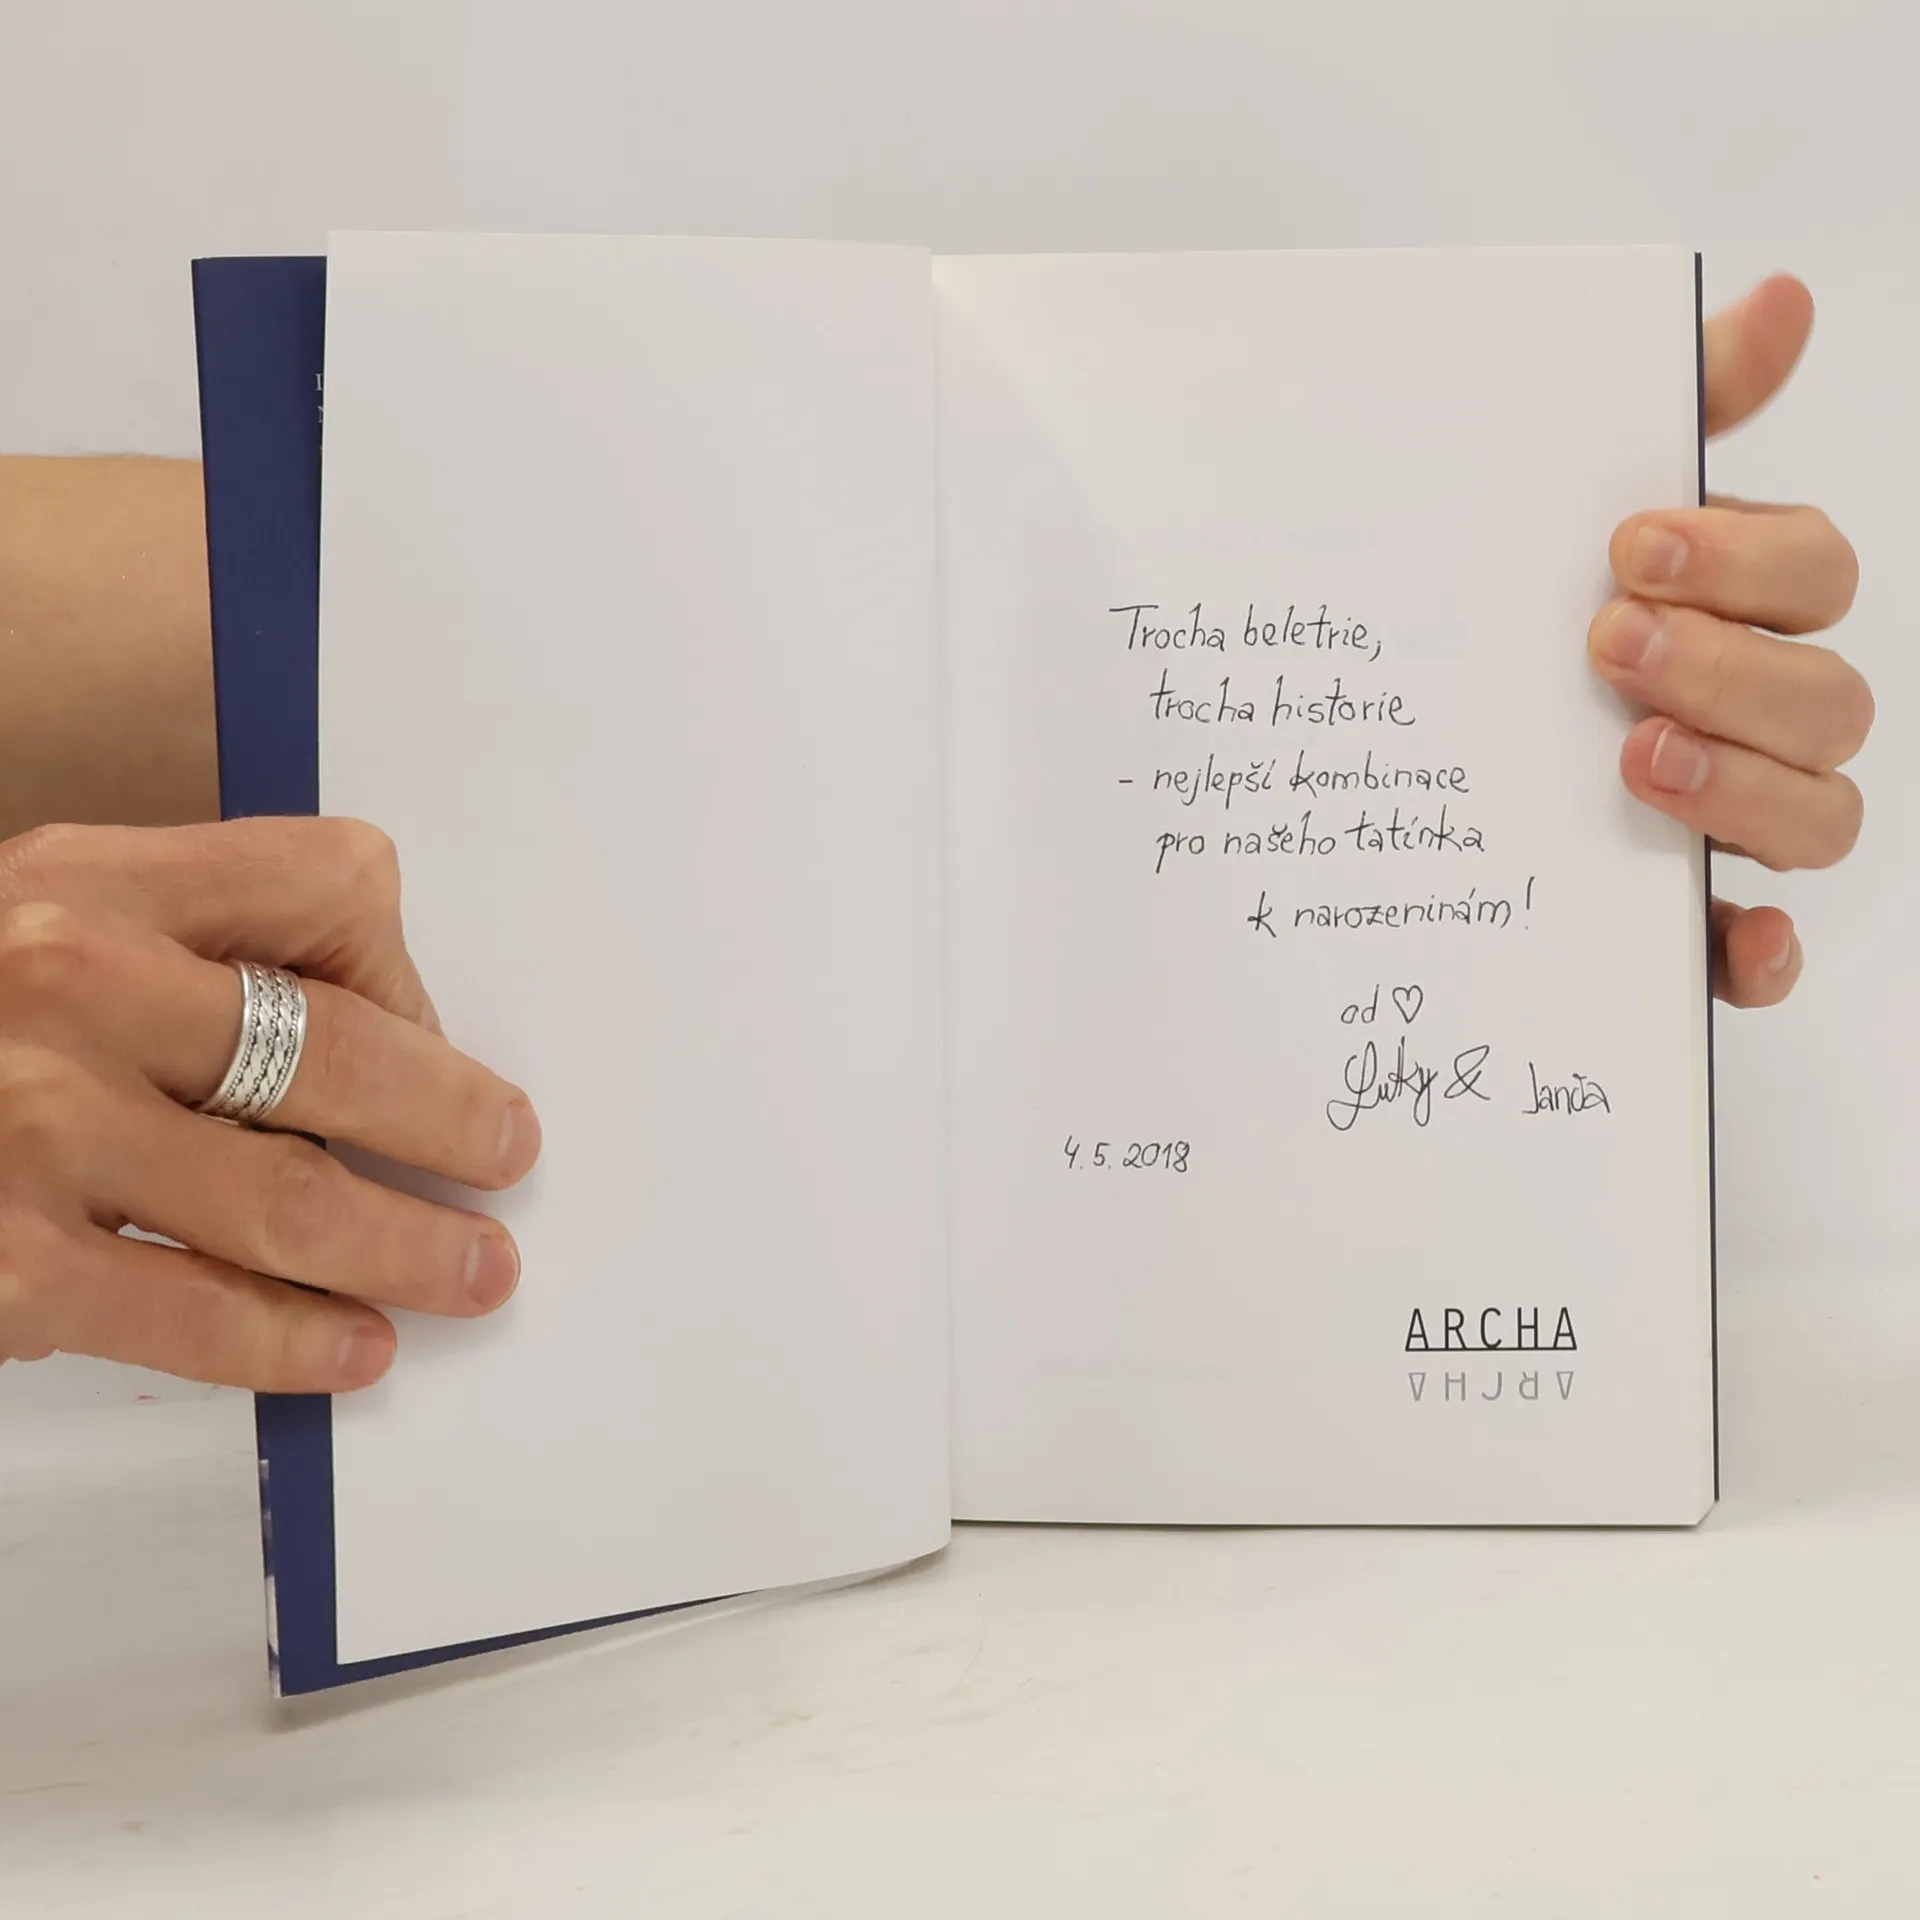 Trocha beletrie,
trocha historie
- nejlepší kombinace
pro našeho tatínka
k narozeninám!
od ♡
Luky & Janča
4.5.2018
ARCHA
ARCHA